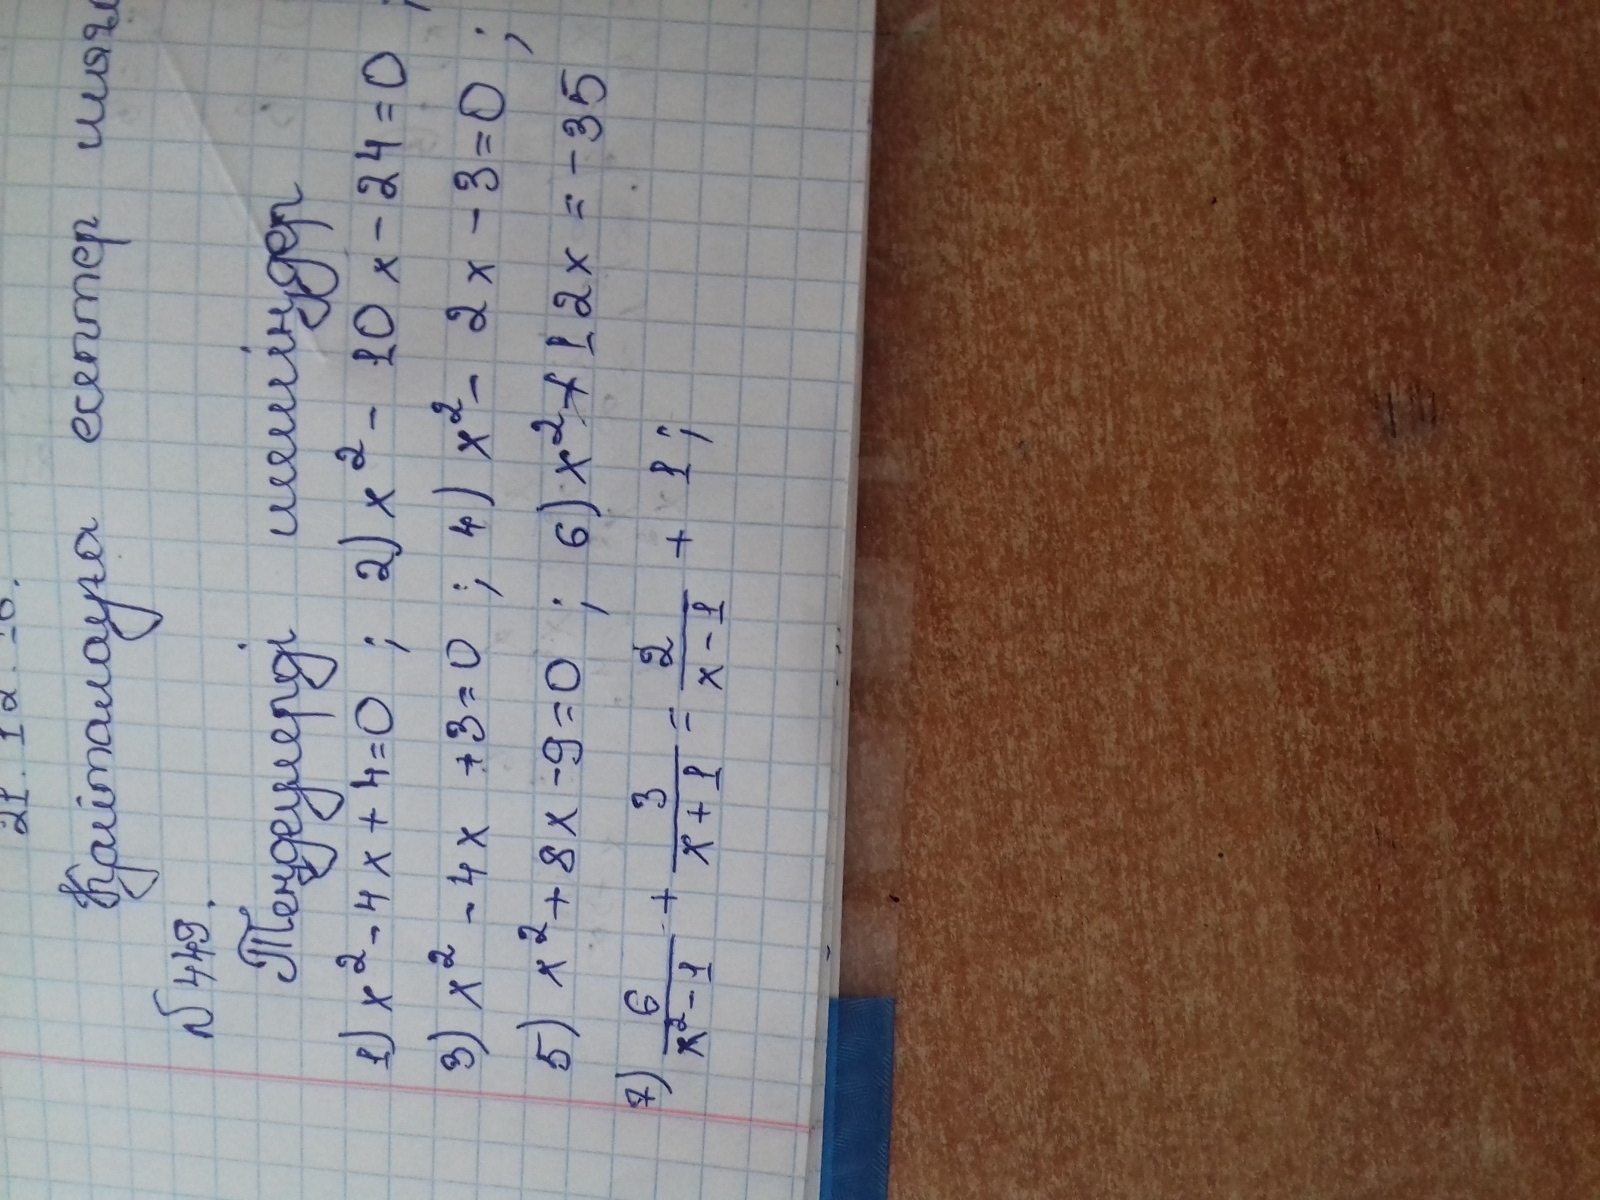 21. 12.
Қайталауға есептер шығ
N 449.
Теңдеулерді шешіңдер
1) x² - 4x + 4 = 0 ; 2) x² - 10x - 24 = 0 ;
3) x² - 4x + 3 = 0 ; 4) x² - 2x - 3 = 0 ;
5) x² + 8x - 9 = 0 ; 6) x² + 12x = -35
7) 6/(x² - 1) + 3/(x + 1) = 2/(x - 1) + 1 ;